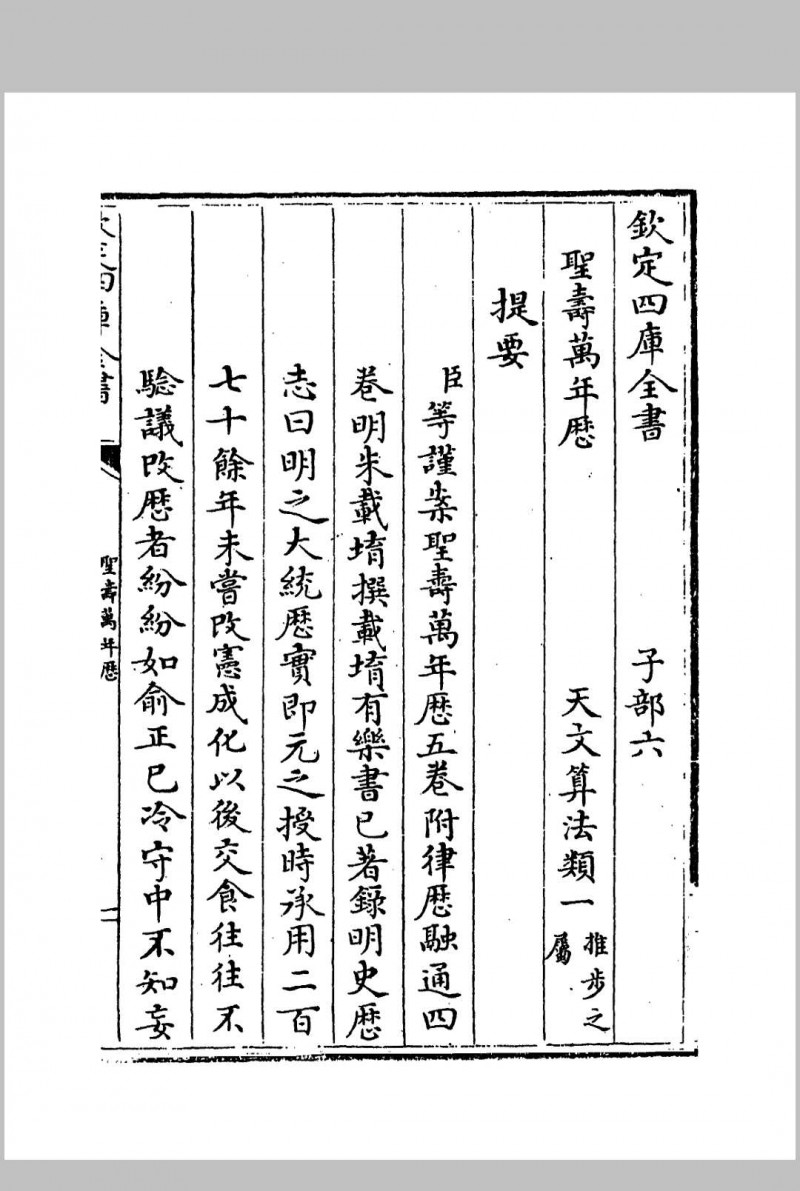 欽定四庫全書　子部六
聖壽萬年厯　天文算法類一推步之屬
提要
臣等謹案聖壽萬年厯五卷附律厯融通四
卷明朱載堉撰載堉有樂書已著錄明史厯
志曰明之大統厯實即元之授時承用二百
七十餘年未嘗改憲成化以後交食往往不
騐議改厯者紛紛如俞正已冷守中不知妄
欽定四庫全書
聖壽萬年厯
一